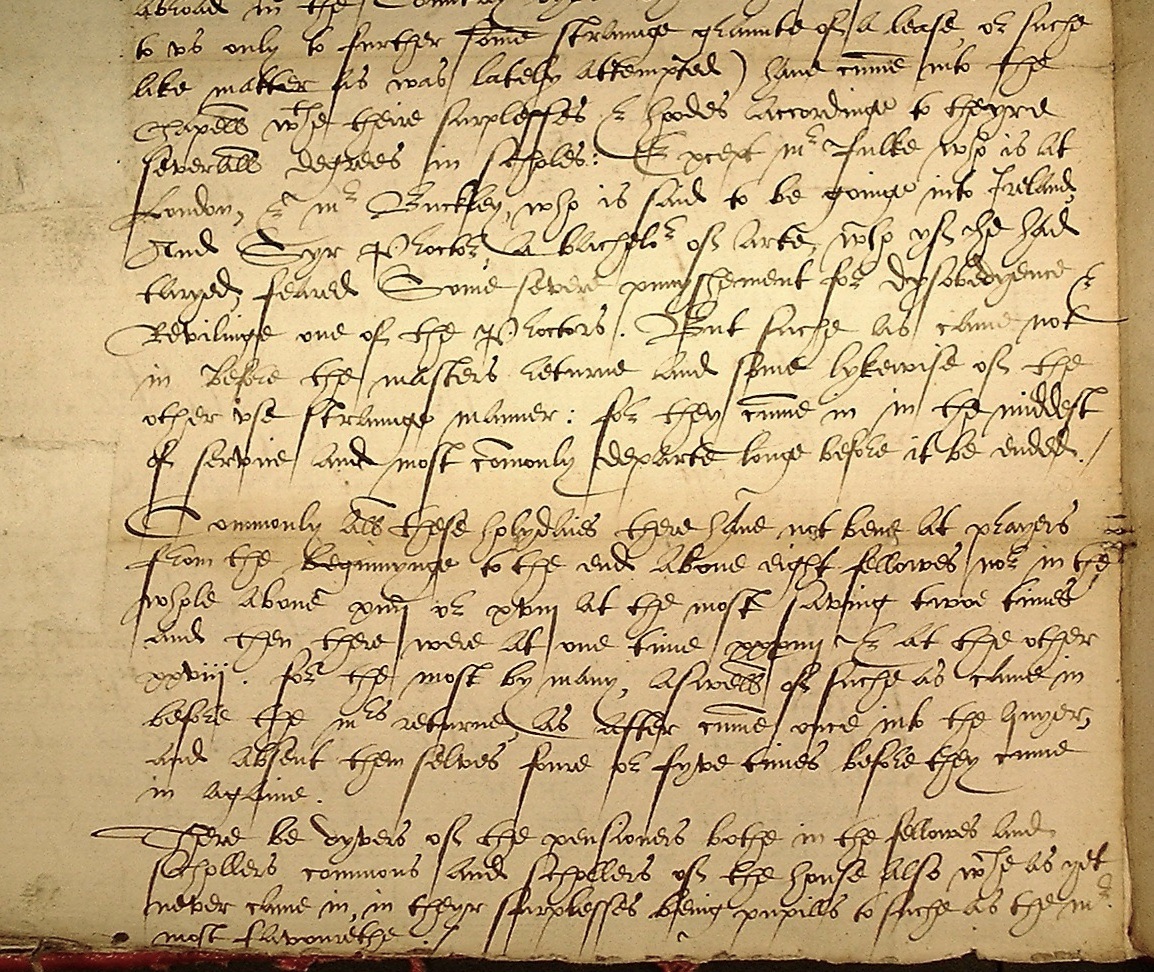 abroad in the Countrey
to vs only to further some straunge graunte of a lease, or suche
like matter as was lately attempted) have cume into the
Chapell wthe theire surplesses & hoodes accordinge to theyre
severall degrees in scholes: Except mr Fulke who is at
London, & mr Buckley, who is said to be goinge into Ireland,
And Syr Proctor, a bachelor of arte, who yf he had
taryed, feared Some severe punyshement for dysobedyence &
Revilinge one of the Proctors. But suche as came not
in before the masters returne and some lykewise of the
other vse straunge maner: for they cume in in the middest
of service and most comonly departe longe before it be ended./
Commonly all these holydaies there have not bene at prayers
from the beginnynge to the end above eight fellowes nor in the
whole above xvij or xviij at the most saving twoe times
and then there were at one time xxxviij & at the other
xxviij. for the most by many, aswell of suche as came in
before the mrs returne, as after cume once into the quyer,
and absent them selves foure or fyve times before they cume
in againe.
There be dyvers of the pensioners bothe in the fellowes and
schollers commons and schollers of the house also wche as yet
never came in, in theyr surplesses being pupills to suche as the mr
most favourethe ./